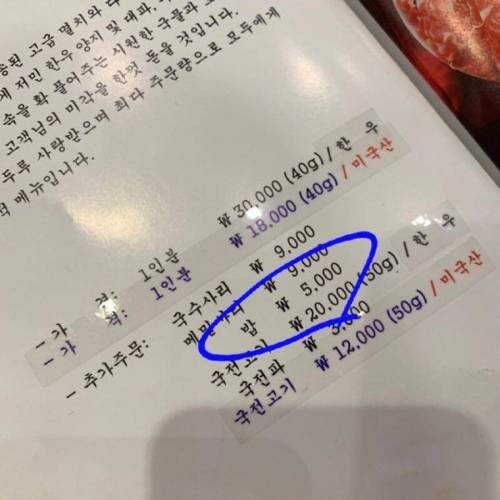 송된 고급 멸치와 다
제 저민 한우 양지 및 대파,
속을 확 풀어주는 시원한 국물과 고
고객님의 미각을 한껏 돋을 것입니다.
두루 사랑받으며 최다 주문량으로 모두에게
적 메뉴입니다.
- 가 격: 1인분 ₩ 30,000 (40g) / 한 우
- 가 격: 1인분 ₩ 18,000 (40g) / 미국산
- 추가주문: 국수사리 ₩ 9,000
메밀사리 ₩ 9,000
밥 ₩ 5,000
국전고기 ₩ 20,000 (50g) / 한 우
국전파 ₩ 3,000
국전고기 ₩ 12,000 (50g) / 미국산